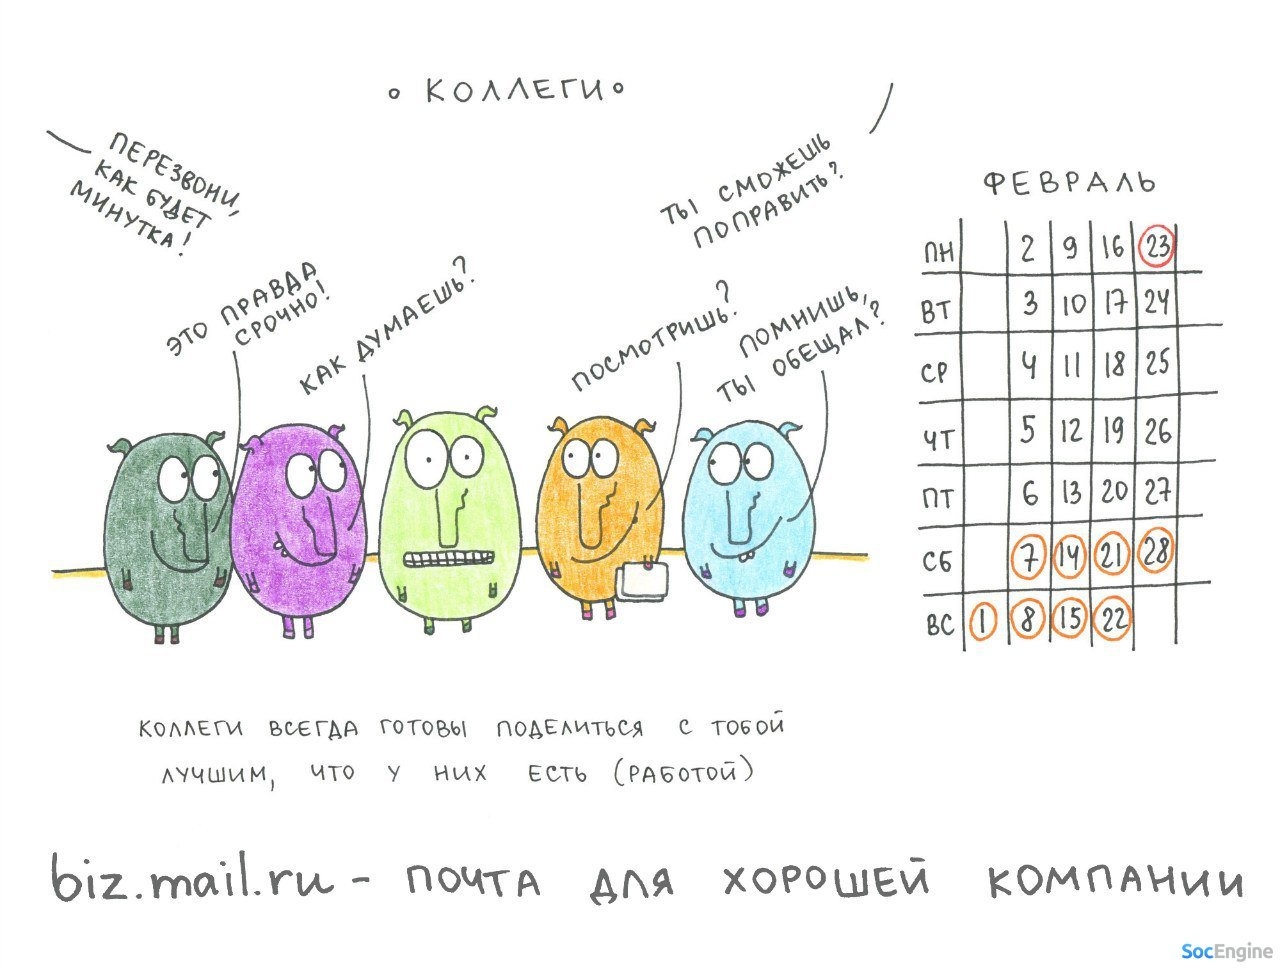 КОЛЛЕГИ
ПЕРЕЗВОНИ,
КАК БУДЕТ
МИНУТКА!
ЭТО ПРАВДА
СРОЧНО!
КАК ДУМАЕШЬ?
ТЫ СМОЖЕШЬ
ПОПРАВИТЬ?
ПОСМОТРИШЬ?
ПОМНИШЬ,
ТЫ ОБЕЩАЛ?
ФЕВРАЛЬ
ПН 2 9 16 23
ВТ 3 10 17 24
СР 4 11 18 25
ЧТ 5 12 19 26
ПТ 6 13 20 27
СБ 7 14 21 28
ВС 1 8 15 22
КОЛЛЕГИ ВСЕГДА ГОТОВЫ ПОДЕЛИТЬСЯ С ТОБОЙ
ЛУЧШИМ, ЧТО У НИХ ЕСТЬ (РАБОТОЙ)
biz.mail.ru - ПОЧТА ДЛЯ ХОРОШЕЙ КОМПАНИИ
SocEngine